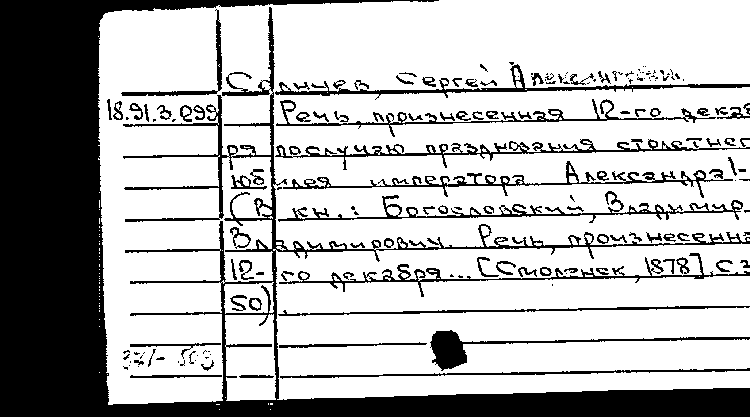 Солнцев, Сергей Александрович
18.91.3.099 Речь, произнесенная 12-го декаб
ря послучаю празднования столетнего
юбилея императора Александра I-
(В кн.: Богословский, Владимир
Владимирович. Речь, произнесенна
12-го декабря... [Смоленск, 1878]. С.3
50).